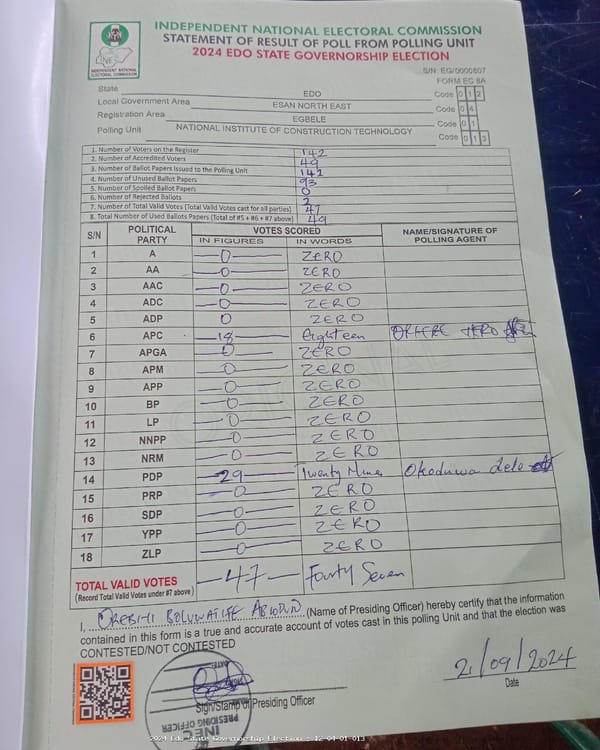 INDEPENDENT NATIONAL ELECTORAL COMMISSION
STATEMENT OF RESULT OF POLL FROM POLLING UNIT
2024 EDO STATE GOVERNORSHIP ELECTION
INDEPENDENT NATIONAL ELECTORAL COMMISSION
S/N: EG/0000807
FORM EC 8A
State EDO Code 0 1 2
Local Government Area ESAN NORTH EAST Code 0 4
Registration Area EGBELE Code 0 1
Polling Unit NATIONAL INSTITUTE OF CONSTRUCTION TECHNOLOGY Code 0 1 3
1. Number of Voters on the Register 142
2. Number of Accredited Voters 49
3. Number of Ballot Papers Issued to the Polling Unit 142
4. Number of Unused Ballot Papers 93
5. Number of Spoiled Ballot Papers 0
6. Number of Rejected Ballots 2
7. Number of Total Valid Votes (Total Valid Votes cast for all parties) 47
8. Total Number of Used Ballots Papers (Total of #5 + #6 + #7 above) 49
S/N POLITICAL PARTY VOTES SCORED NAME/SIGNATURE OF POLLING AGENT
IN FIGURES IN WORDS
1 A 0 ZERO
2 AA 0 ZERO
3 AAC 0 ZERO
4 ADC 0 ZERO
5 ADP 0 ZERO
6 APC 18 Eighteen
7 APGA 0 ZERO
8 APM 0 ZERO
9 APP 0 ZERO
10 BP 0 ZERO
11 LP 0 ZERO
12 NNPP 0 ZERO
13 NRM 0 ZERO
14 PDP 29 Twenty Nine Okoduwa dele
15 PRP 0 ZERO
16 SDP 0 ZERO
17 YPP 0 ZERO
18 ZLP 0 ZERO
TOTAL VALID VOTES 47 Fourty Seven
(Record Total Valid Votes under #7 above)
I, OREBIYI BOLUWATIFE ABIODUN (Name of Presiding Officer) hereby certify that the information
contained in this form is a true and accurate account of votes cast in this polling Unit and that the election was
CONTESTED/NOT CONTESTED
21/09/2024
Sign/Stamp of Presiding Officer
Date
PRESIDING OFFICER
INEC
2024 Edo State Governorship Election : 12-04-01-013